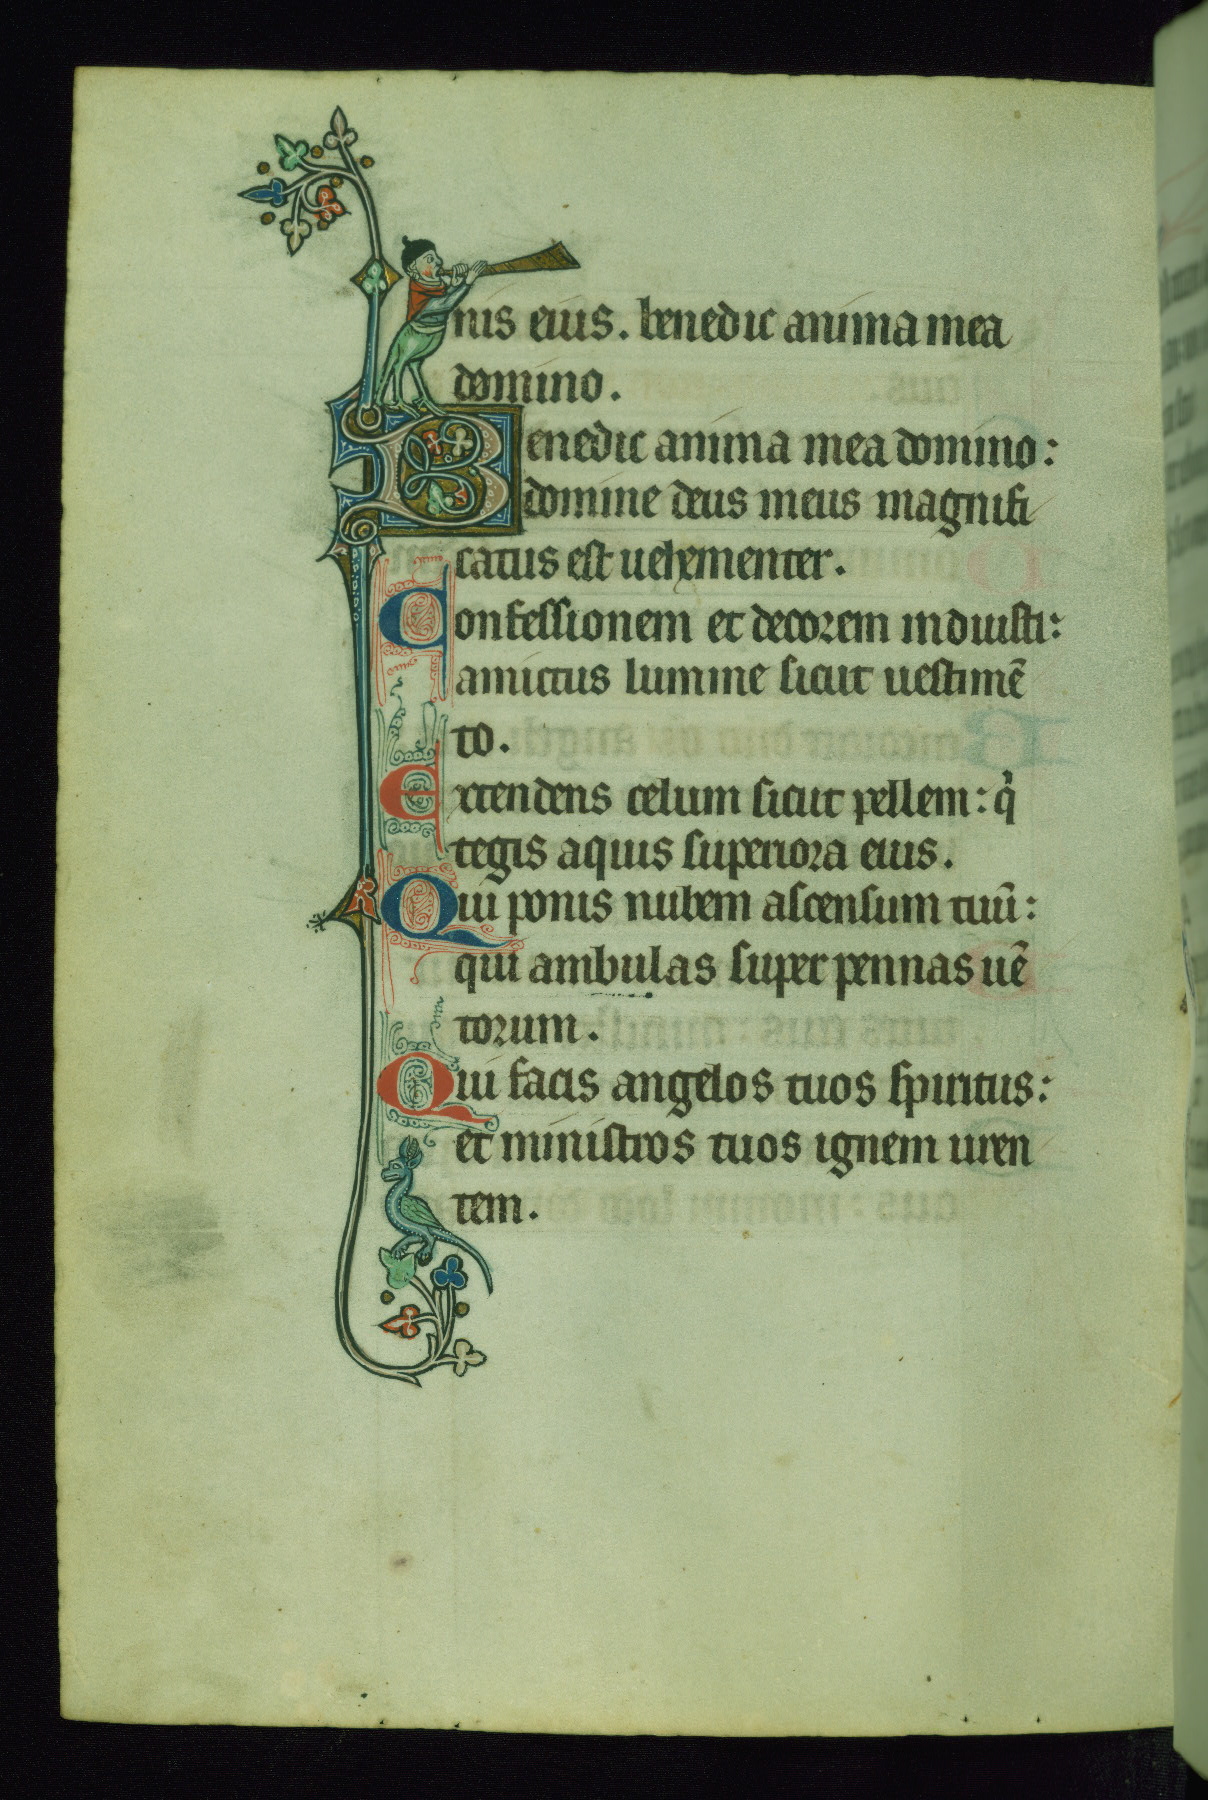 nis eius. benedic anima mea
domino.
Benedic anima mea domino:
domine deus meus magnifi
catus est uehementer.
Confessionem et decorem induisti:
amictus lumine sicut uestimē
to.
Extendens celum sicut pellem: qͥ
tegis aquis superiora eius.
Qui ponis nubem ascensum tuū:
qui ambulas super pennas uē
torum.
Qui facis angelos tuos spiritus:
et ministros tuos ignem uren
tem.